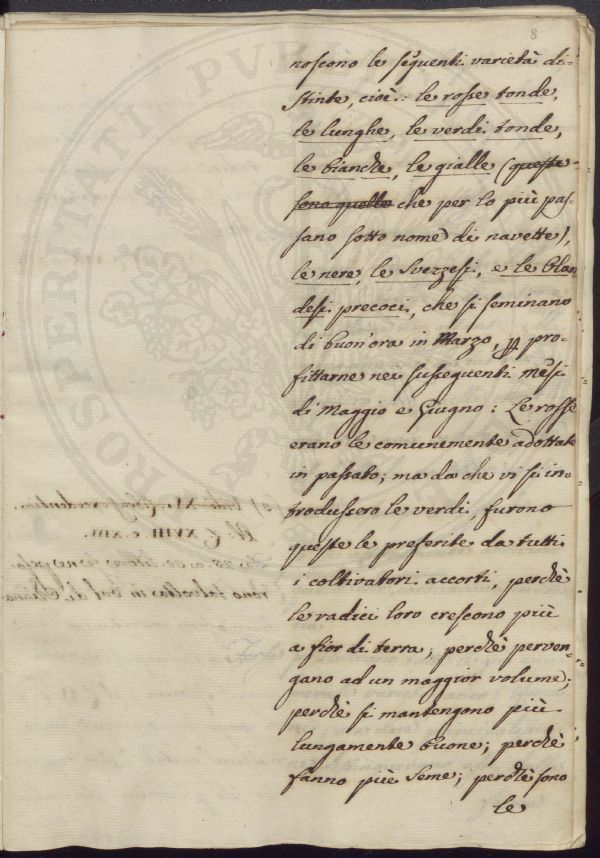 8
noscono le seguenti varietà di-
stinte, cioè: le rosse tonde,
le lunghe, le verdi tonde,
le bianche, le gialle (queste
sono quelle che per lo più pas-
sano sotto nome di navette),
le nere, le Svezzesi, e le Olan-
desi precoci, che si seminano
di buon'ora in Marzo, per pro-
fittarne nei susseguenti mesi
di Maggio e Giugno: Le rosse
erano le comunemente adottate
in passato; ma da che vi si in-
trodussero le verdi, furono
queste le preferite da tutti
i coltivatori accorti, perchè
le radici loro crescono più
a fior di terra; perchè perven-
gano ad un maggior volume;
perchè si mantengono più
lungamente buone; perchè
fanno più seme; perchè sono
le